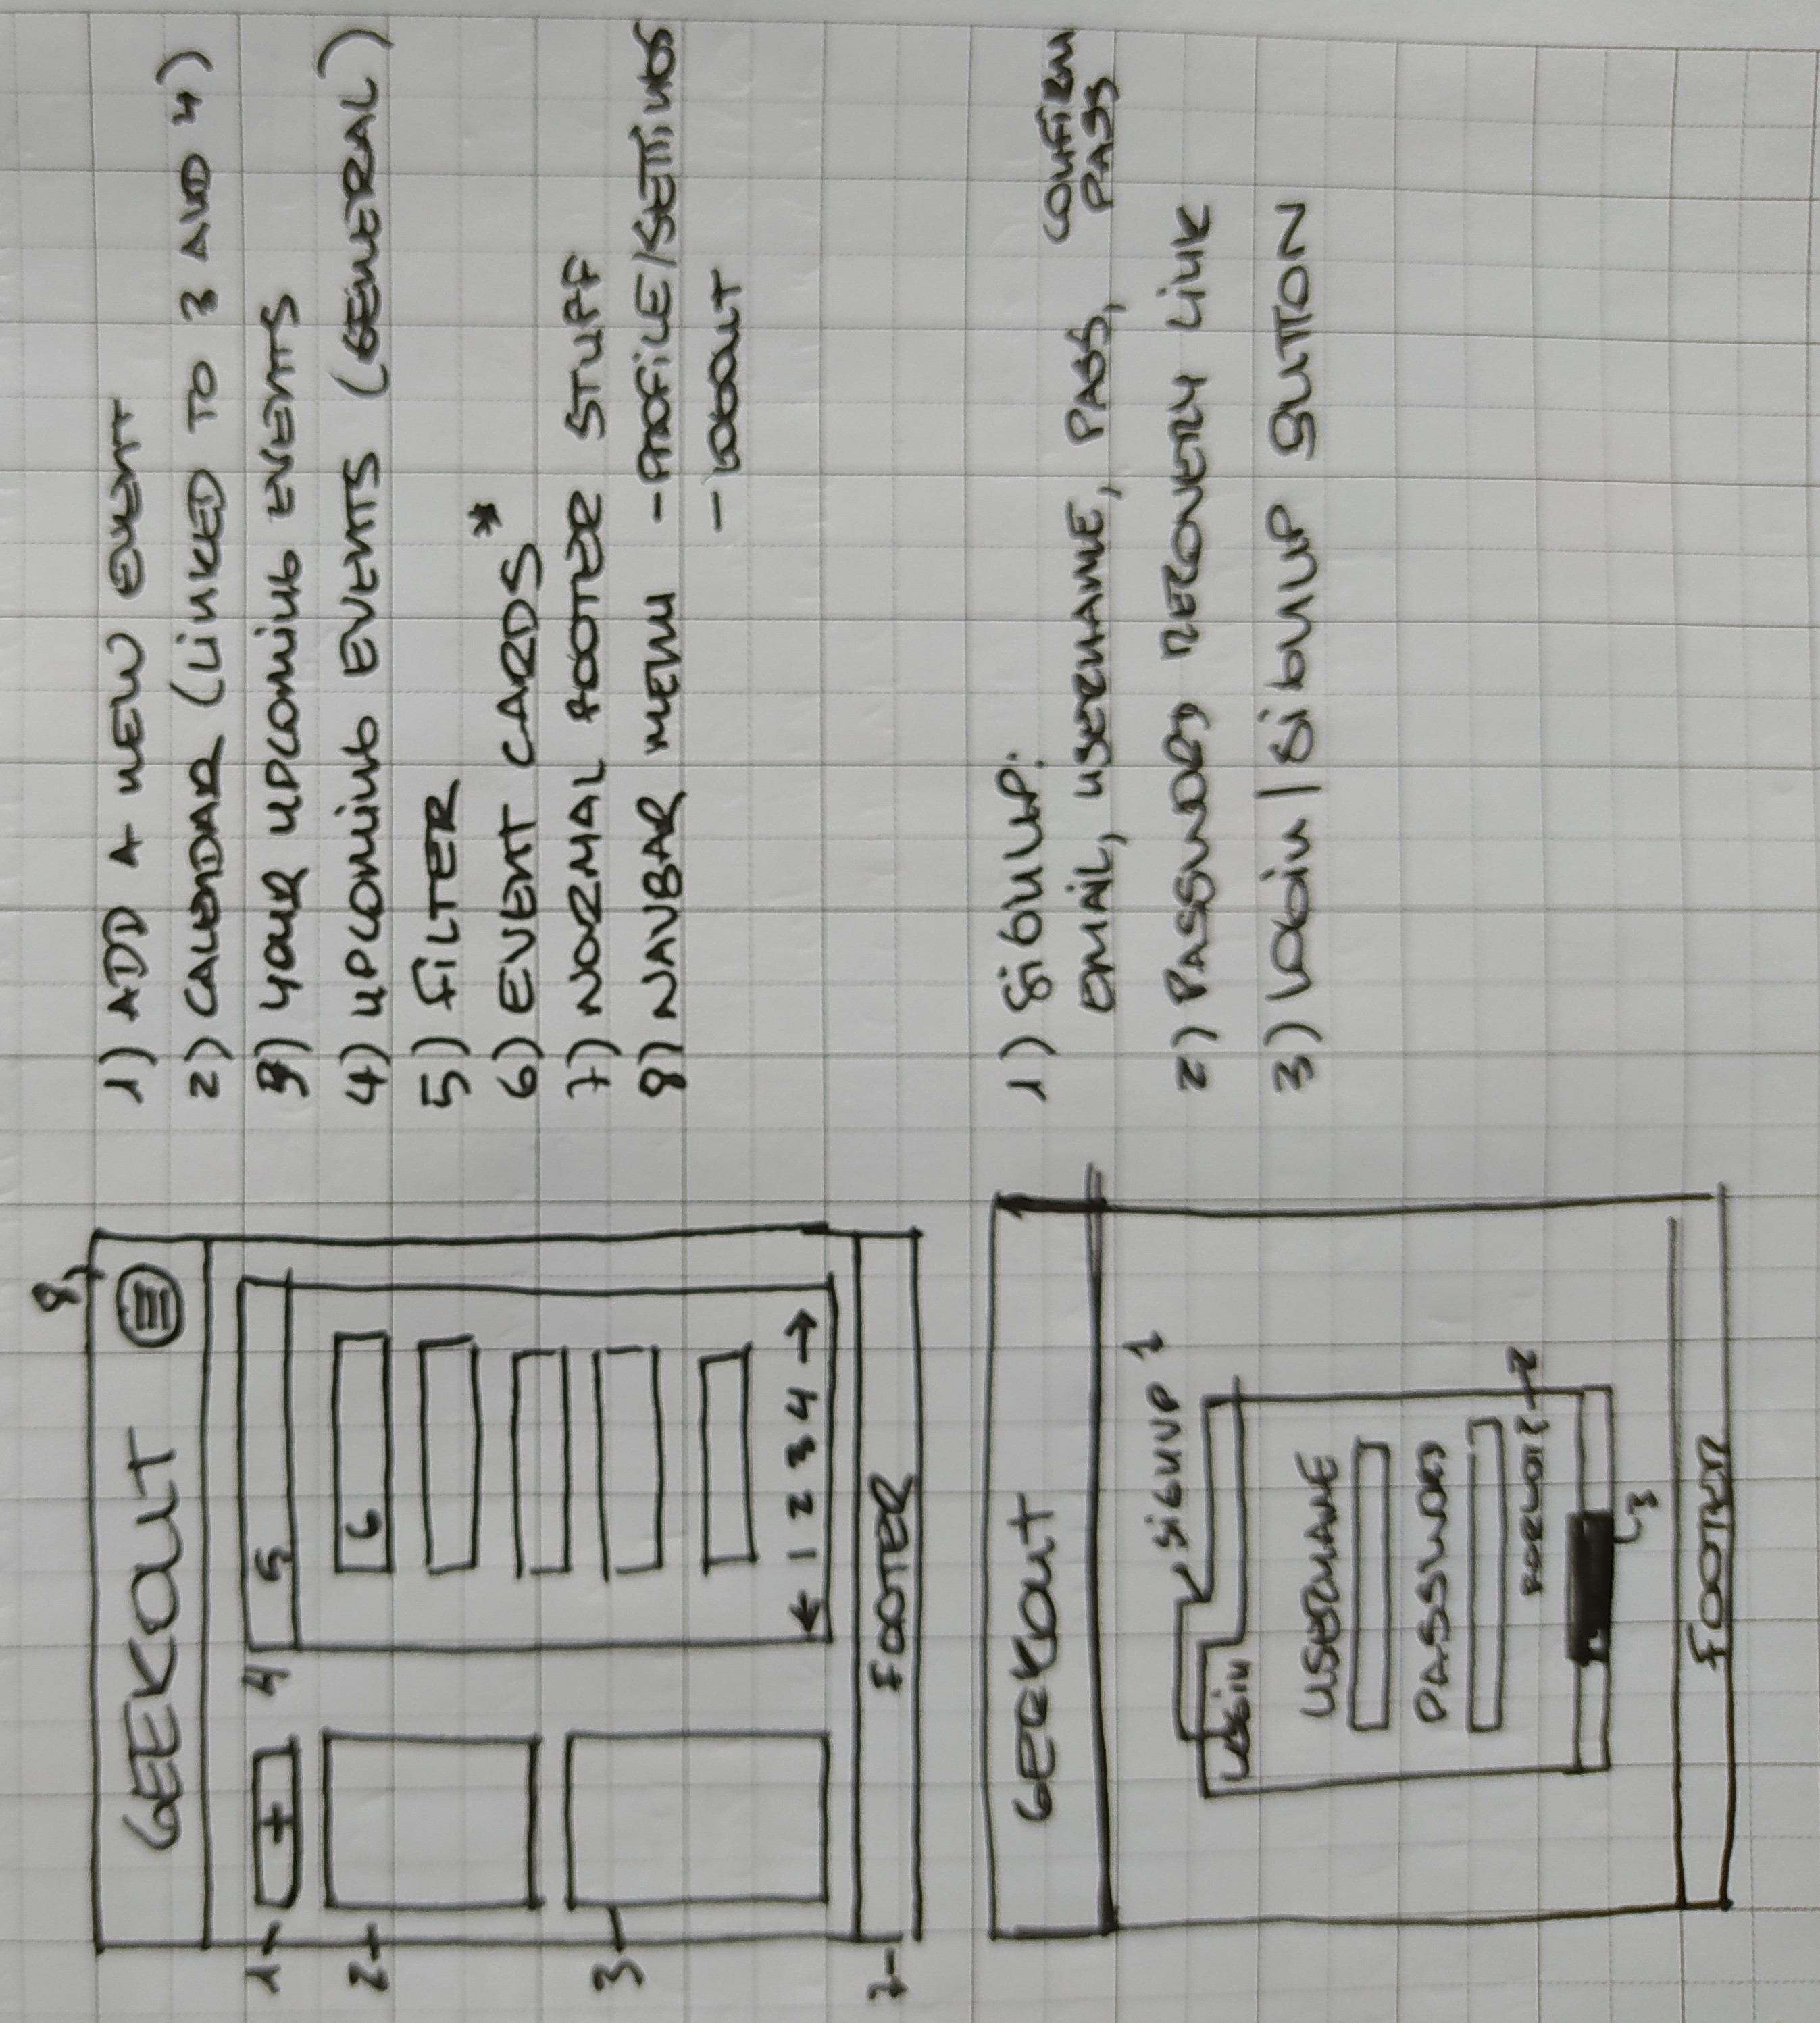 8
GEEKOUT
1
+
4
5
2
6
3
← 1 2 3 4 →
7
FOOTER
1) ADD A NEW EVENT
2) CALENDAR (LINKED TO 3 AND 4)
3) YOUR UPCOMING EVENTS
4) UPCOMING EVENTS (GENERAL)
5) FILTER
6) EVENT CARDS*
7) NORMAL FOOTER STUFF
8) NAVBAR MENU - PROFILE/SETTINGS
- LOGOUT
GEEKOUT
SIGNUP 1
LOGIN
USERNAME
PASSWORD
FORGOT? 2
3
FOOTER
1) SIGNUP:
EMAIL, USERNAME, PASS, CONFIRM
PASS
2) PASSWORD RECOVERY LINK
3) LOGIN/SIGNUP BUTTON